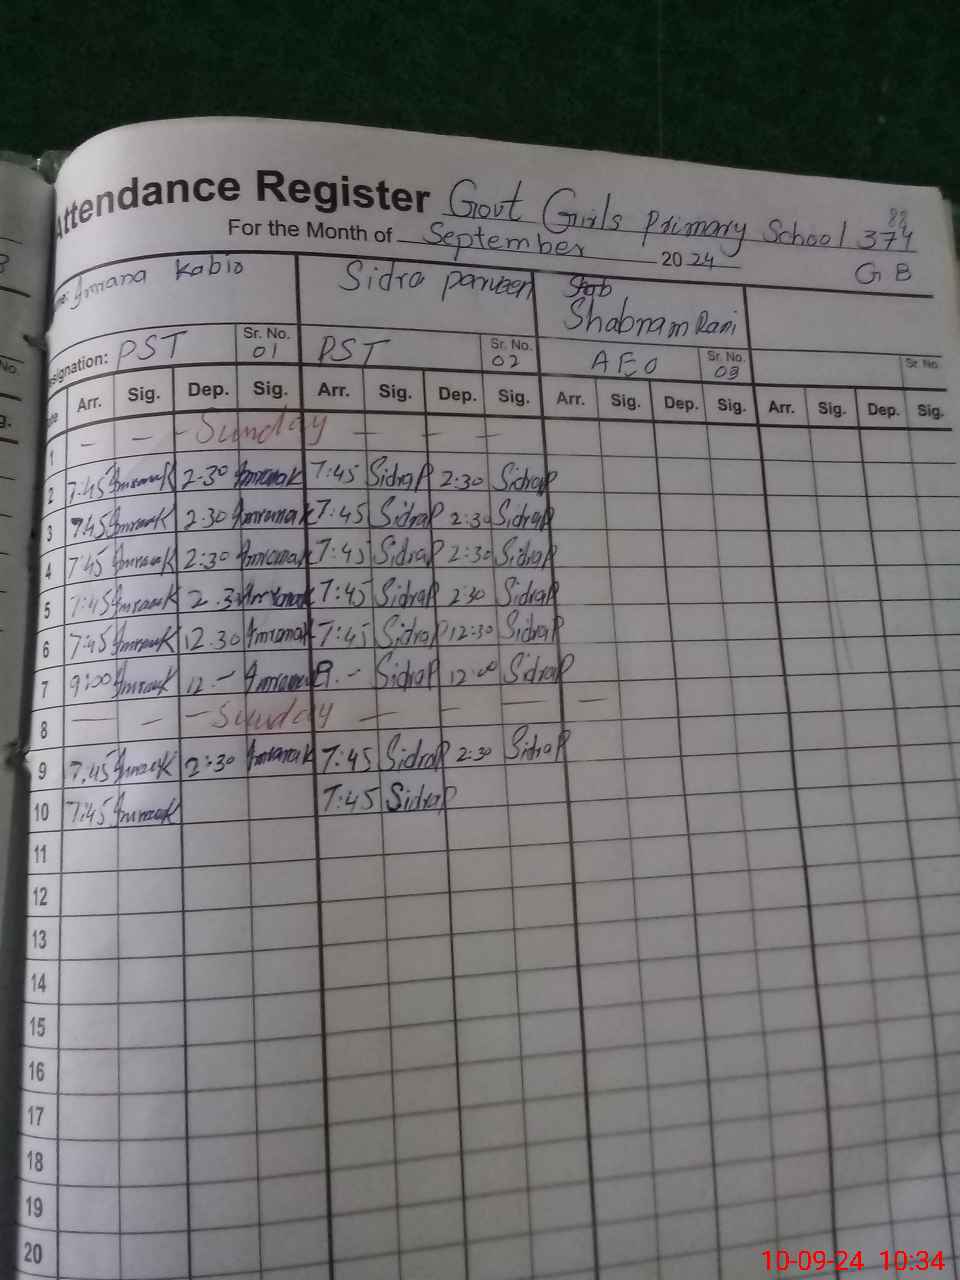 Attendance Register Govt Girls Primary School 374
88
For the Month of September 2024 GB
Kabir Sidra parveen Shabnam Rani
Designation: PST Sr. No. 01 PST Sr. No. 02 AEO Sr. No. 03 Sr. No.
Arr. Sig. Dep. Sig. Arr. Sig. Dep. Sig. Arr. Sig. Dep. Sig. Arr. Sig. Dep. Sig.
1 — — — Sunday — — —
2 7:45 2:30 7:45 SidraP 2:30 SidraP
3 7:45 2:30 7:45 SidraP 2:30 SidraP
4 7:45 2:30 7:45 SidraP 2:30 SidraP
5 7:45 2:3 7:45 SidraP 2:30 SidraP
6 7:45 12:30 7:45 SidraP 12:30 SidraP
7 9:00 12:- 9:- SidraP 12:00 SidraP
8 — — — Sunday — — — —
9 7:45 2:30 7:45 SidraP 2:30 SidraP
10 7:45 7:45 SidraP
11
12
13
14
15
16
17
18
19
20
10-09-24 10:34